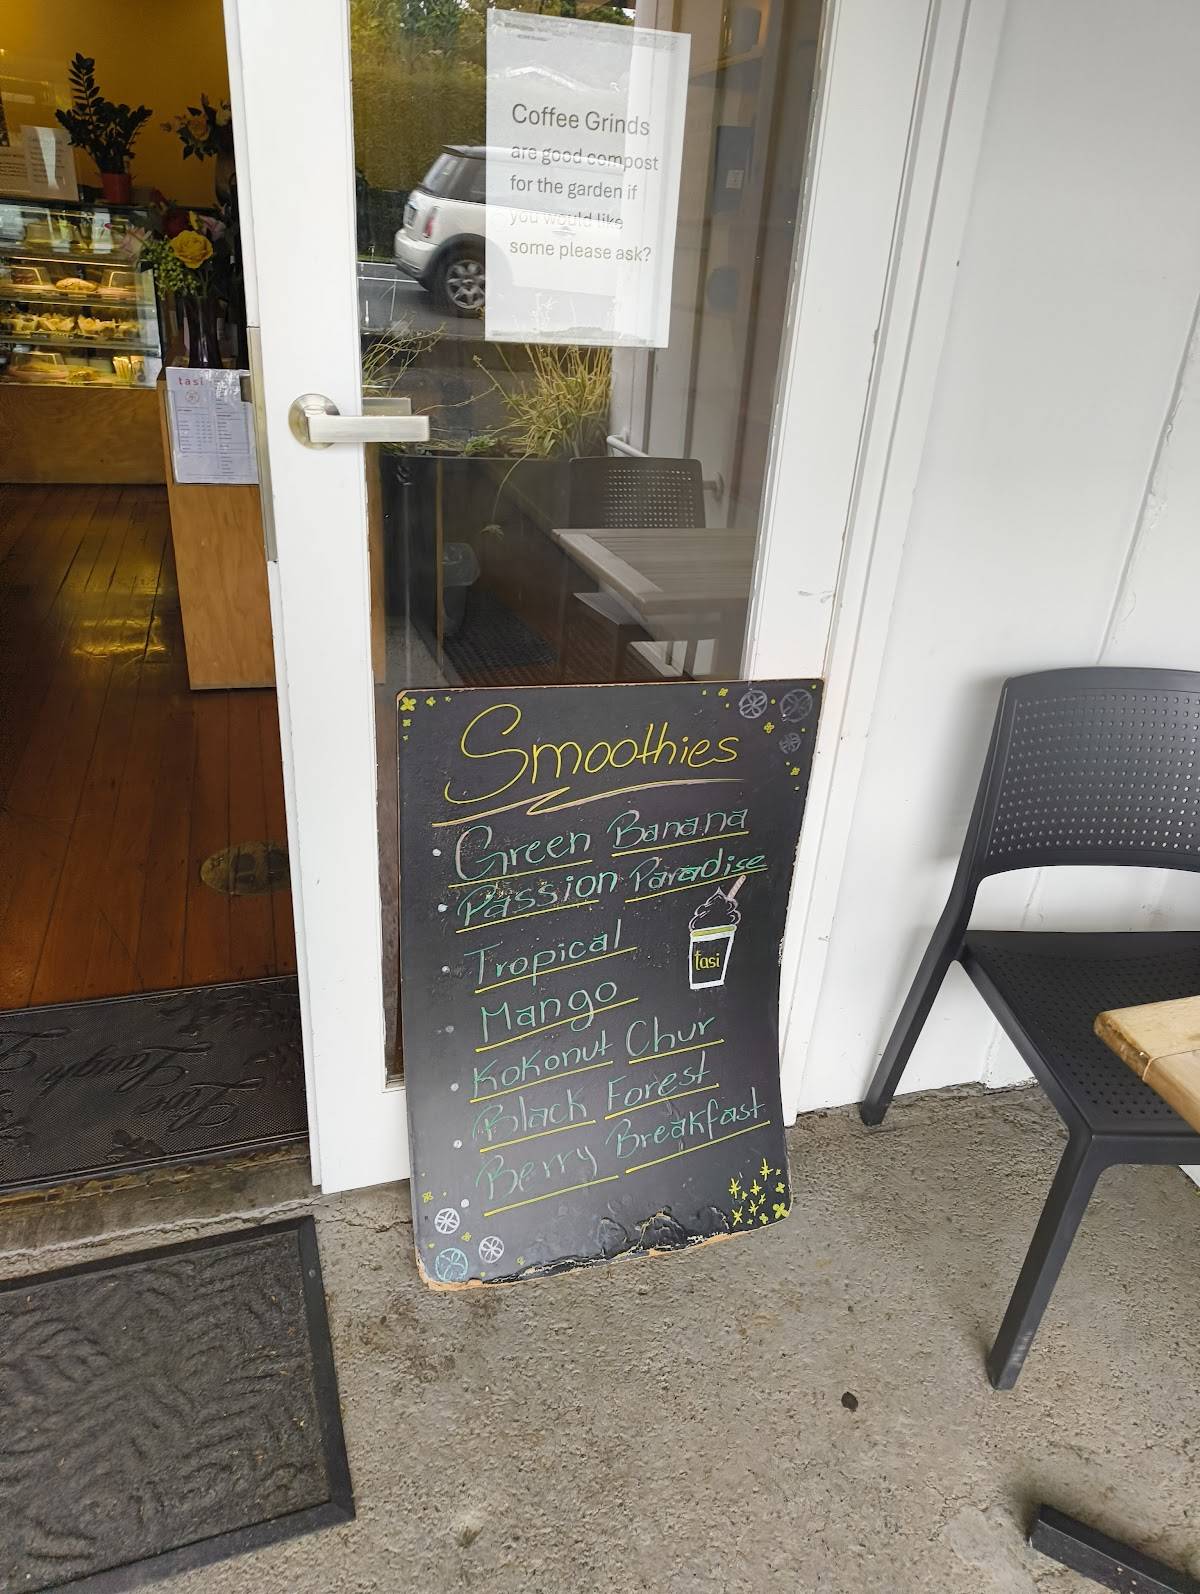 Coffee Grinds
are good compost
for the garden if
you would like
some please ask?
tasi
Smoothies
Green Banana
Passion Paradise
Tropical
Mango
Kokonut Chur
Black Forest
Berry Breakfast
tasi
Live
Laugh